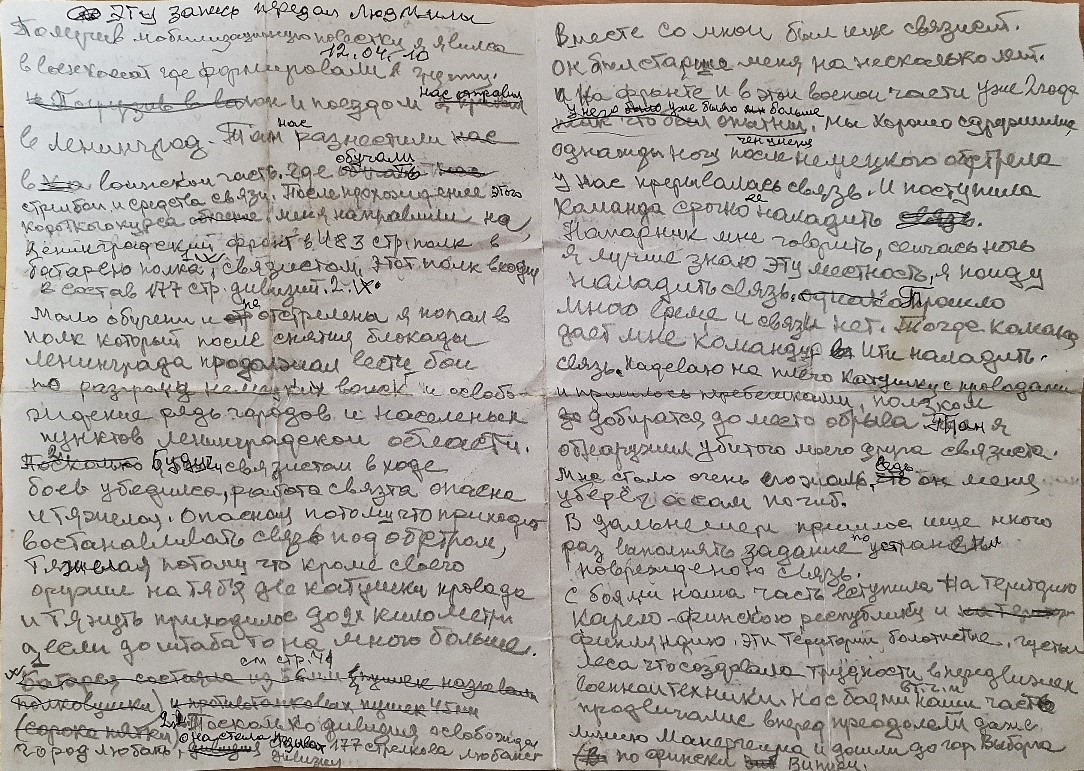 Эту запись передал Людмилы
Получив мобилизационную повестку я явился
12.04.10
в военкомат где формировали к
и поездом нас отправил
в Ленинград. Там нас разместили
в воинской часть. Где обучали
стрелбои и средства связи. После прохождение этого
короткого курса меня направили на
Ленинградский фронт в 483 стр. полк в
батарею полка, связистом, этот полк входил
в состав 177 стр. дивизии.
Мало обучени и не отстрелены я попал в
полк которий после снятия блокады
Ленинграда продолжал вести бои
по разгрому немецких воиск и освобо-
ждение рядь городов и населеных
пунктов Ленинградскои области.
Будучи связистом в ходе
боев убедился, работа связта опасна
и тяжелоя. Опасноя потому что приходит
востанавливать связь под обстрелом,
Тяжелая потому что кроме своего
оружие на тебя две катушки провада
и тягнуть приходилос до 2х километри
а если до штаба то на много больше.
см стр. 4
батарея состояла из пушек
полковушки) и противотанковых пушек 45мм
(сорока пятки) Посколко дивизия освобождал
город Любань, она стела 177 стрелкова Любанс
дивизии
Вместе со мной был ище связист.
Он был старше меня на несколько лет.
и на фронте и в этои военои части уже 2 года
У него уже было больше
опытни, Мы хорошо сдружилис
чем у меня
однажды ночу после немецкого обстрела
у нас прерывалась связь. И поступила
команда срочно ее наладить
Напарник мне говорить, сеичась ночь
я лучше знаю эту местность, я поиду
наладить связь. Прошло
много време и связи нет. Тогде команд
дает мне команду ити наладить.
связь. Надеваю на плечо катушку с провадами
и пришлось ползком
добиратся до место обрыва. Там я
обнаружил убитого моего друга связиста.
Мне стало очень его жаль, ведь он меня
уберёг а сам погиб.
В дальнеишем пришлос ище много
раз выполнять задание по устранения
поврежденою связь.
С боями наша часть вступила на територию
Карело-финскою республику и
Финляндию. Эти територии болотистые, густыи
леса что создовало трудности в передвижен
военнои техники. Но с боями наши часть
в т.ч. и
продвигалис вперед преодолели даже
линию Манергеима и дошли до гор. Выборга
по фински Випури.